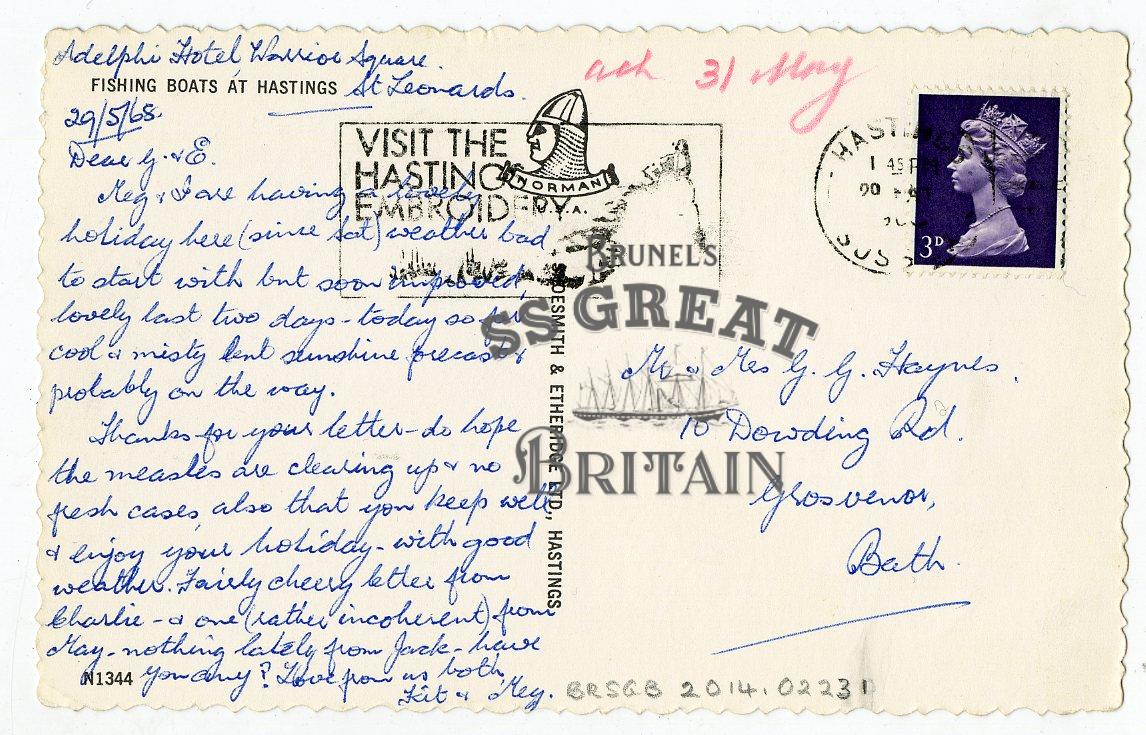 Adelphi Hotel, Warrior Square.
FISHING BOATS AT HASTINGS
St Leonards.
29/5/68.
Dear G. & E.
Meg & I are having a lovely
holiday here (since Sat) weather bad
to start with but soon improved,
lovely last two days - today so far
cool & misty but sunshine forecast &
probably on the way.
Thanks for your letter - do hope
the measles are clearing up & no
fresh cases, also that you keep well
& enjoy your holiday - with good
weather. Fairly cheery letter from
Charlie - & one (rather incoherent) from
May - nothing lately from Jack - have
you any? Love from us both,
& Meg.
N1344
SHOESMITH & ETHERIDGE LTD., HASTINGS
ack 31 May
VISIT THE
HASTINGS
EMBROIDERY
NORMAN
HASTINGS
1 45 P
SUSS
3D
BRUNEL'S
SS GREAT
BRITAIN
Mr & Mrs G. G. Haynes.
10 Dowding Rd.
Grosvenor,
Bath.
BRSGB 2014.0223